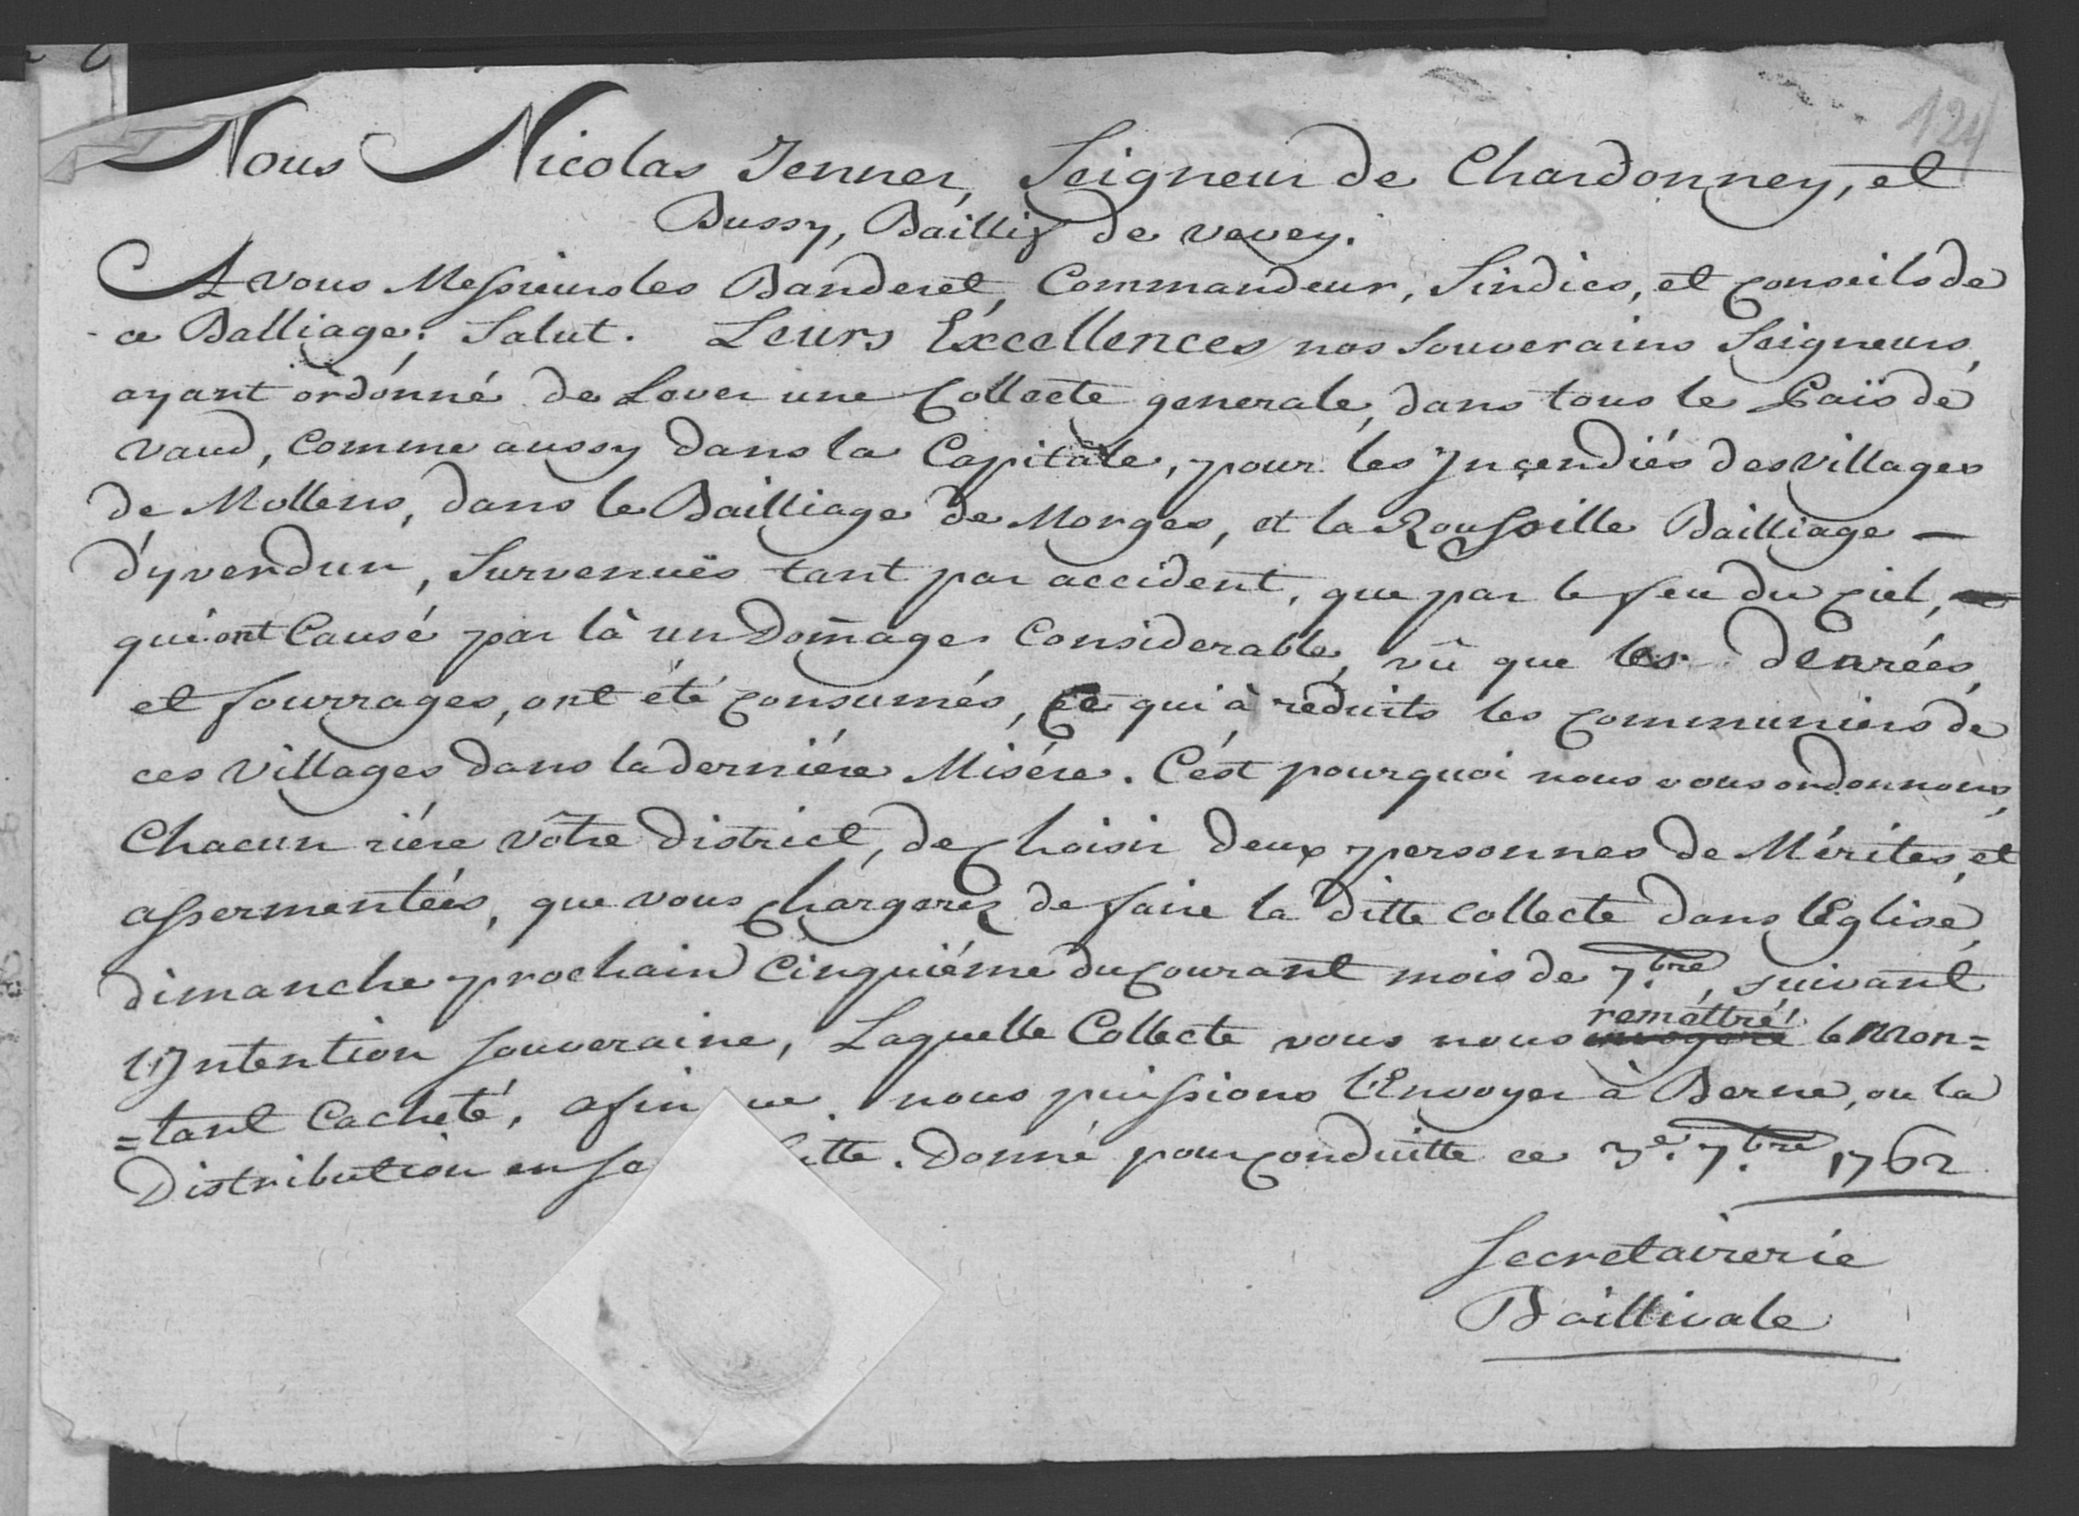 124
Nous Nicolas Jenner, Seigneur de Chardonney, et
Bussy, Baillif de vevey.
A vous Messieurs les Banderet, Commandeur, Sindics, et Conseils de
ce Balliage; Salut. Leurs Excellences nos Souverains Seigneurs,
ayant ordonné de Lever une Collecte generale, dans tous le Païs de
vaud, comme aussy dans la Capitale, pour les Jncendiés des villages
de Mollens, dans le Bailliage de Morges, et la Bailliage —
d'yverdun, Survenuës tant par accident, que par le feu du Ciel,
qui ont Causé par là un Dom̃age Considerable, vû que les denrées,
et fourrages, ont été Consumés, Ce qui à reduits les Communiers de
ces Villages dans la derniére Misére. C'ést pourquoi nous vous ordonnons,
Chacun riére vôtre District, de Choisir deux personnes de Mérites, et
assermentées, que vous Chargerés de faire la ditte Collecte dans l'Eglise,
dimanche prochain Cinquiéme du Courant mois de 7.bre, suivant
l'Jntention Souveraine, Laquelle Collecte vous nous remettré le Mon=
=tant Cacheté, afin ue nous puissions l'Envoyer à Berne, ou la
Distribution en se itte. Donné pour Conduitte ce 3e. 7.bre 1762
Secretairerie
Baillivale